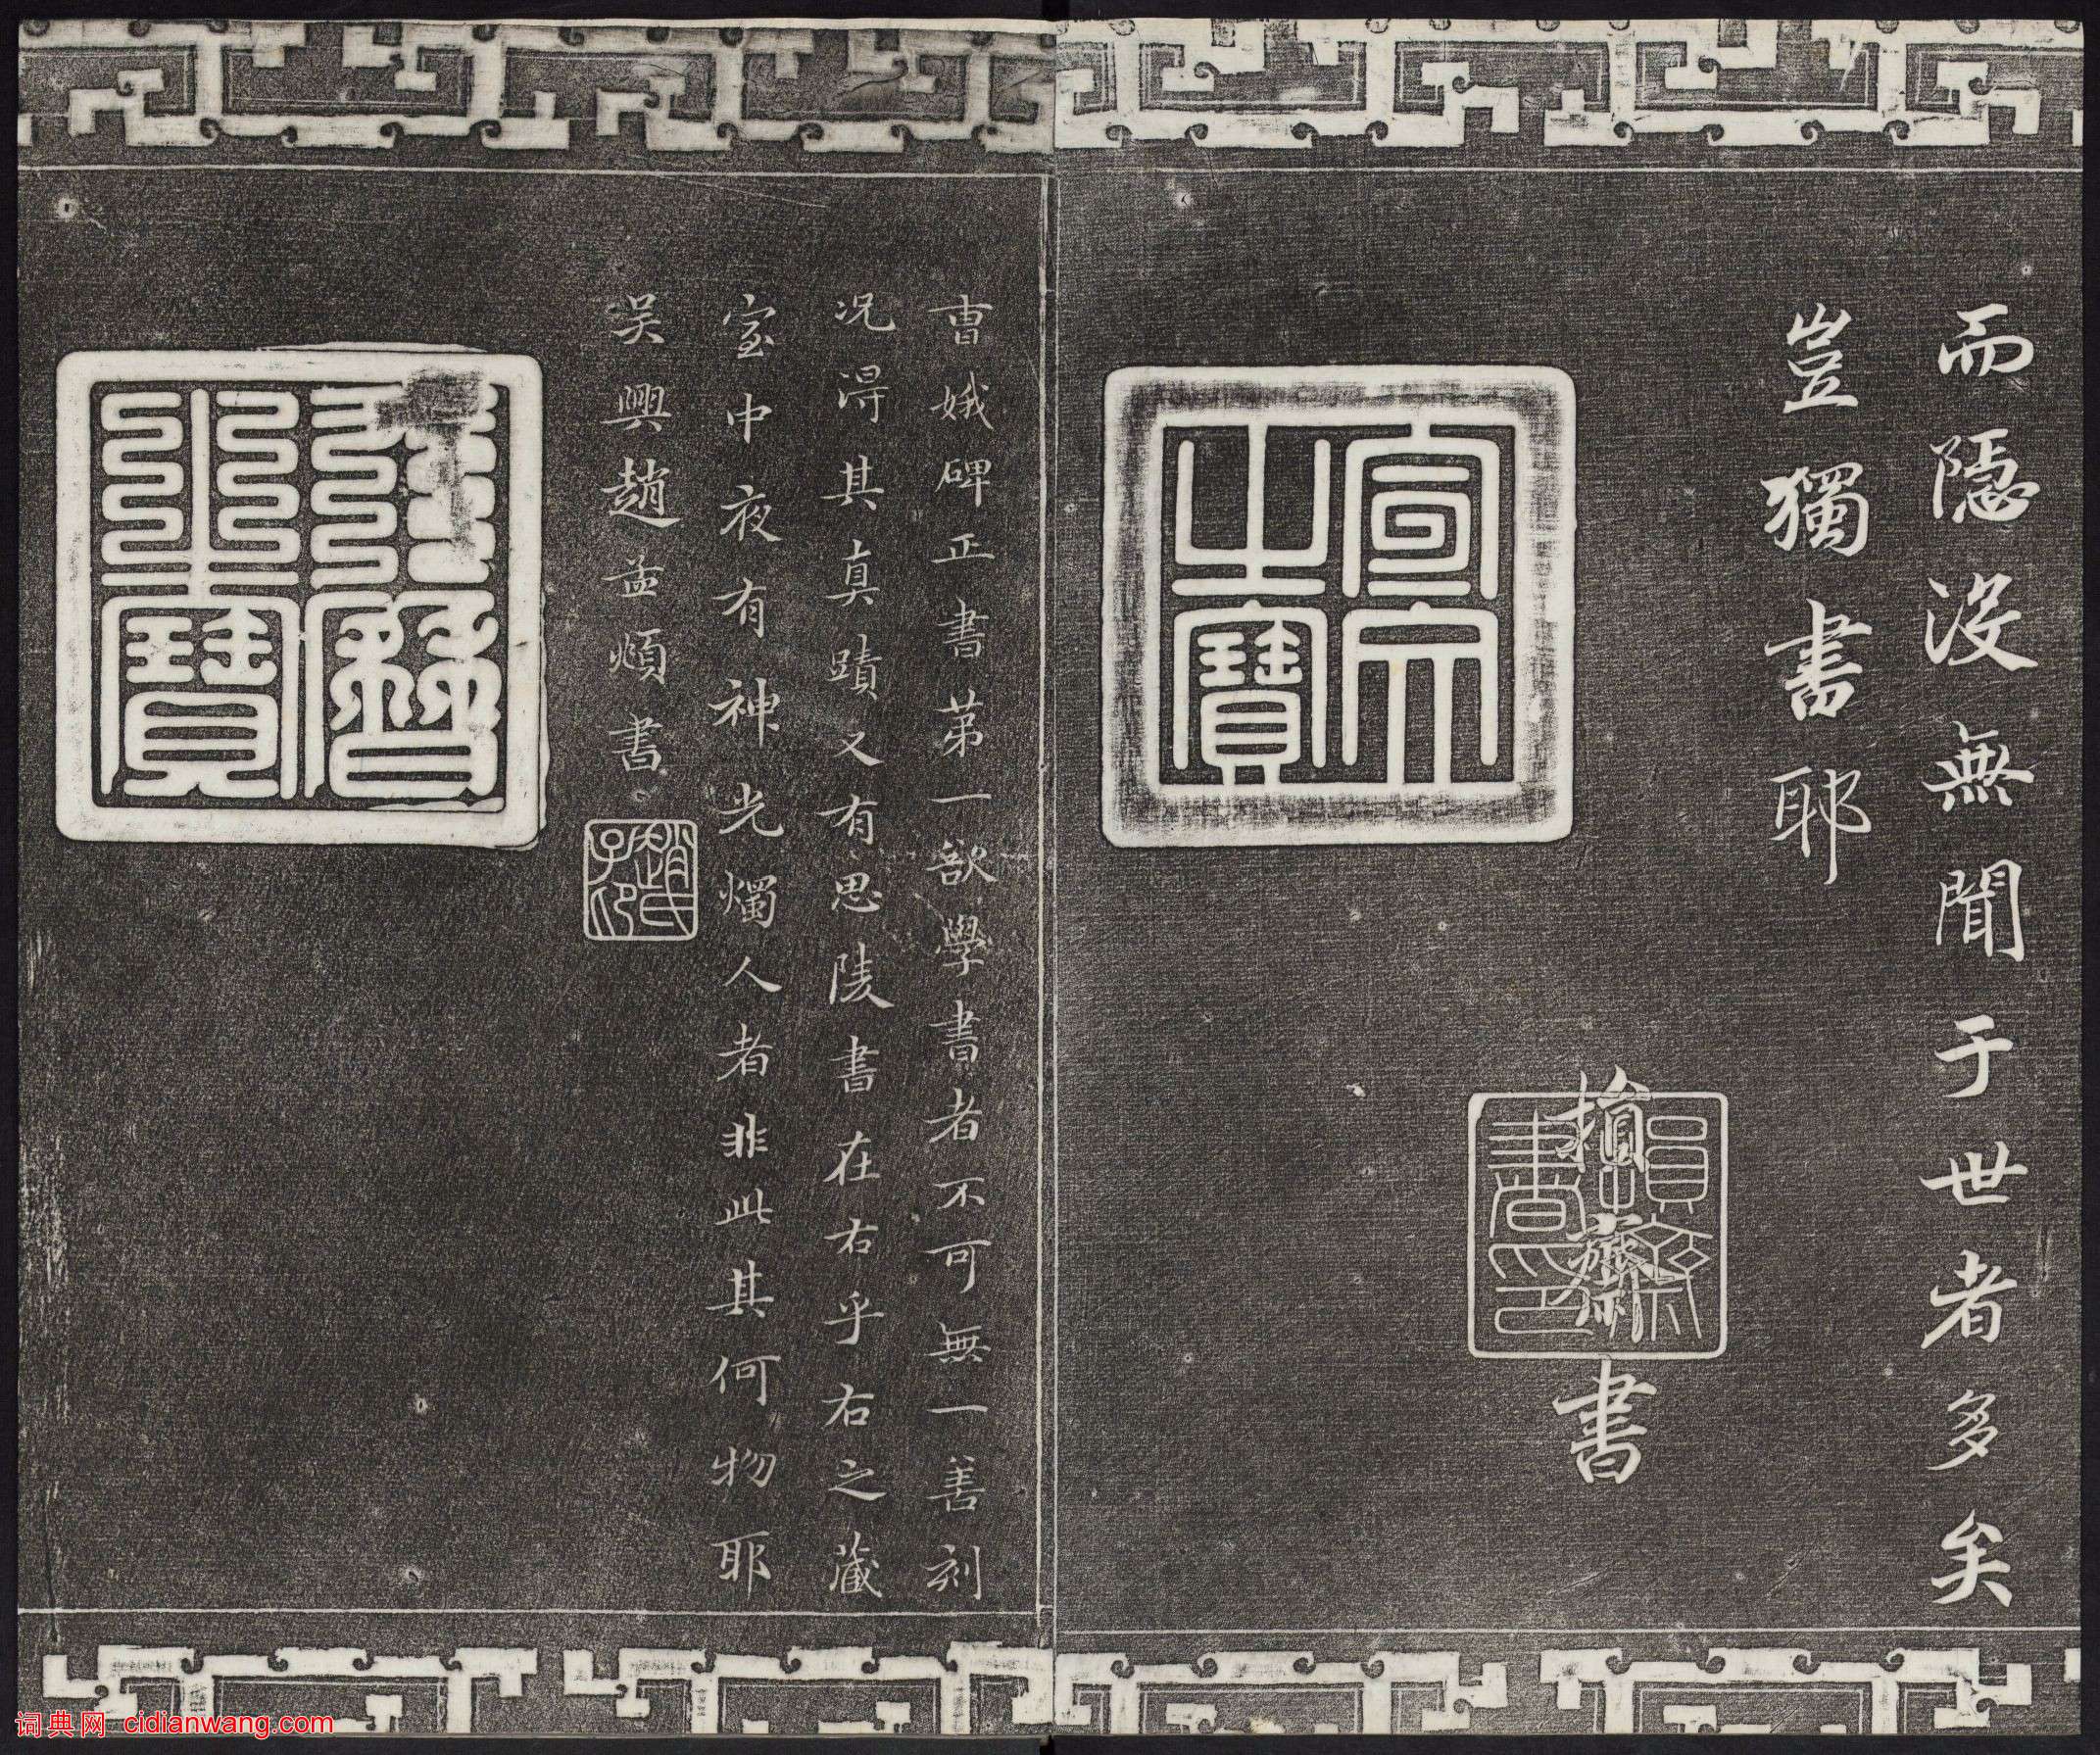 而隱沒無聞于世者多矣
豈獨書耶
宣宗之寶
損齋書印
損齋書
曹娥碑正書第一欲學書者不可無一善刻
況得其真蹟又有思陵書在右乎右之藏
室中夜有神光燭人者非此其何物耶
吳興趙孟頫書
趙氏子印
詞典网 cidianwang.com